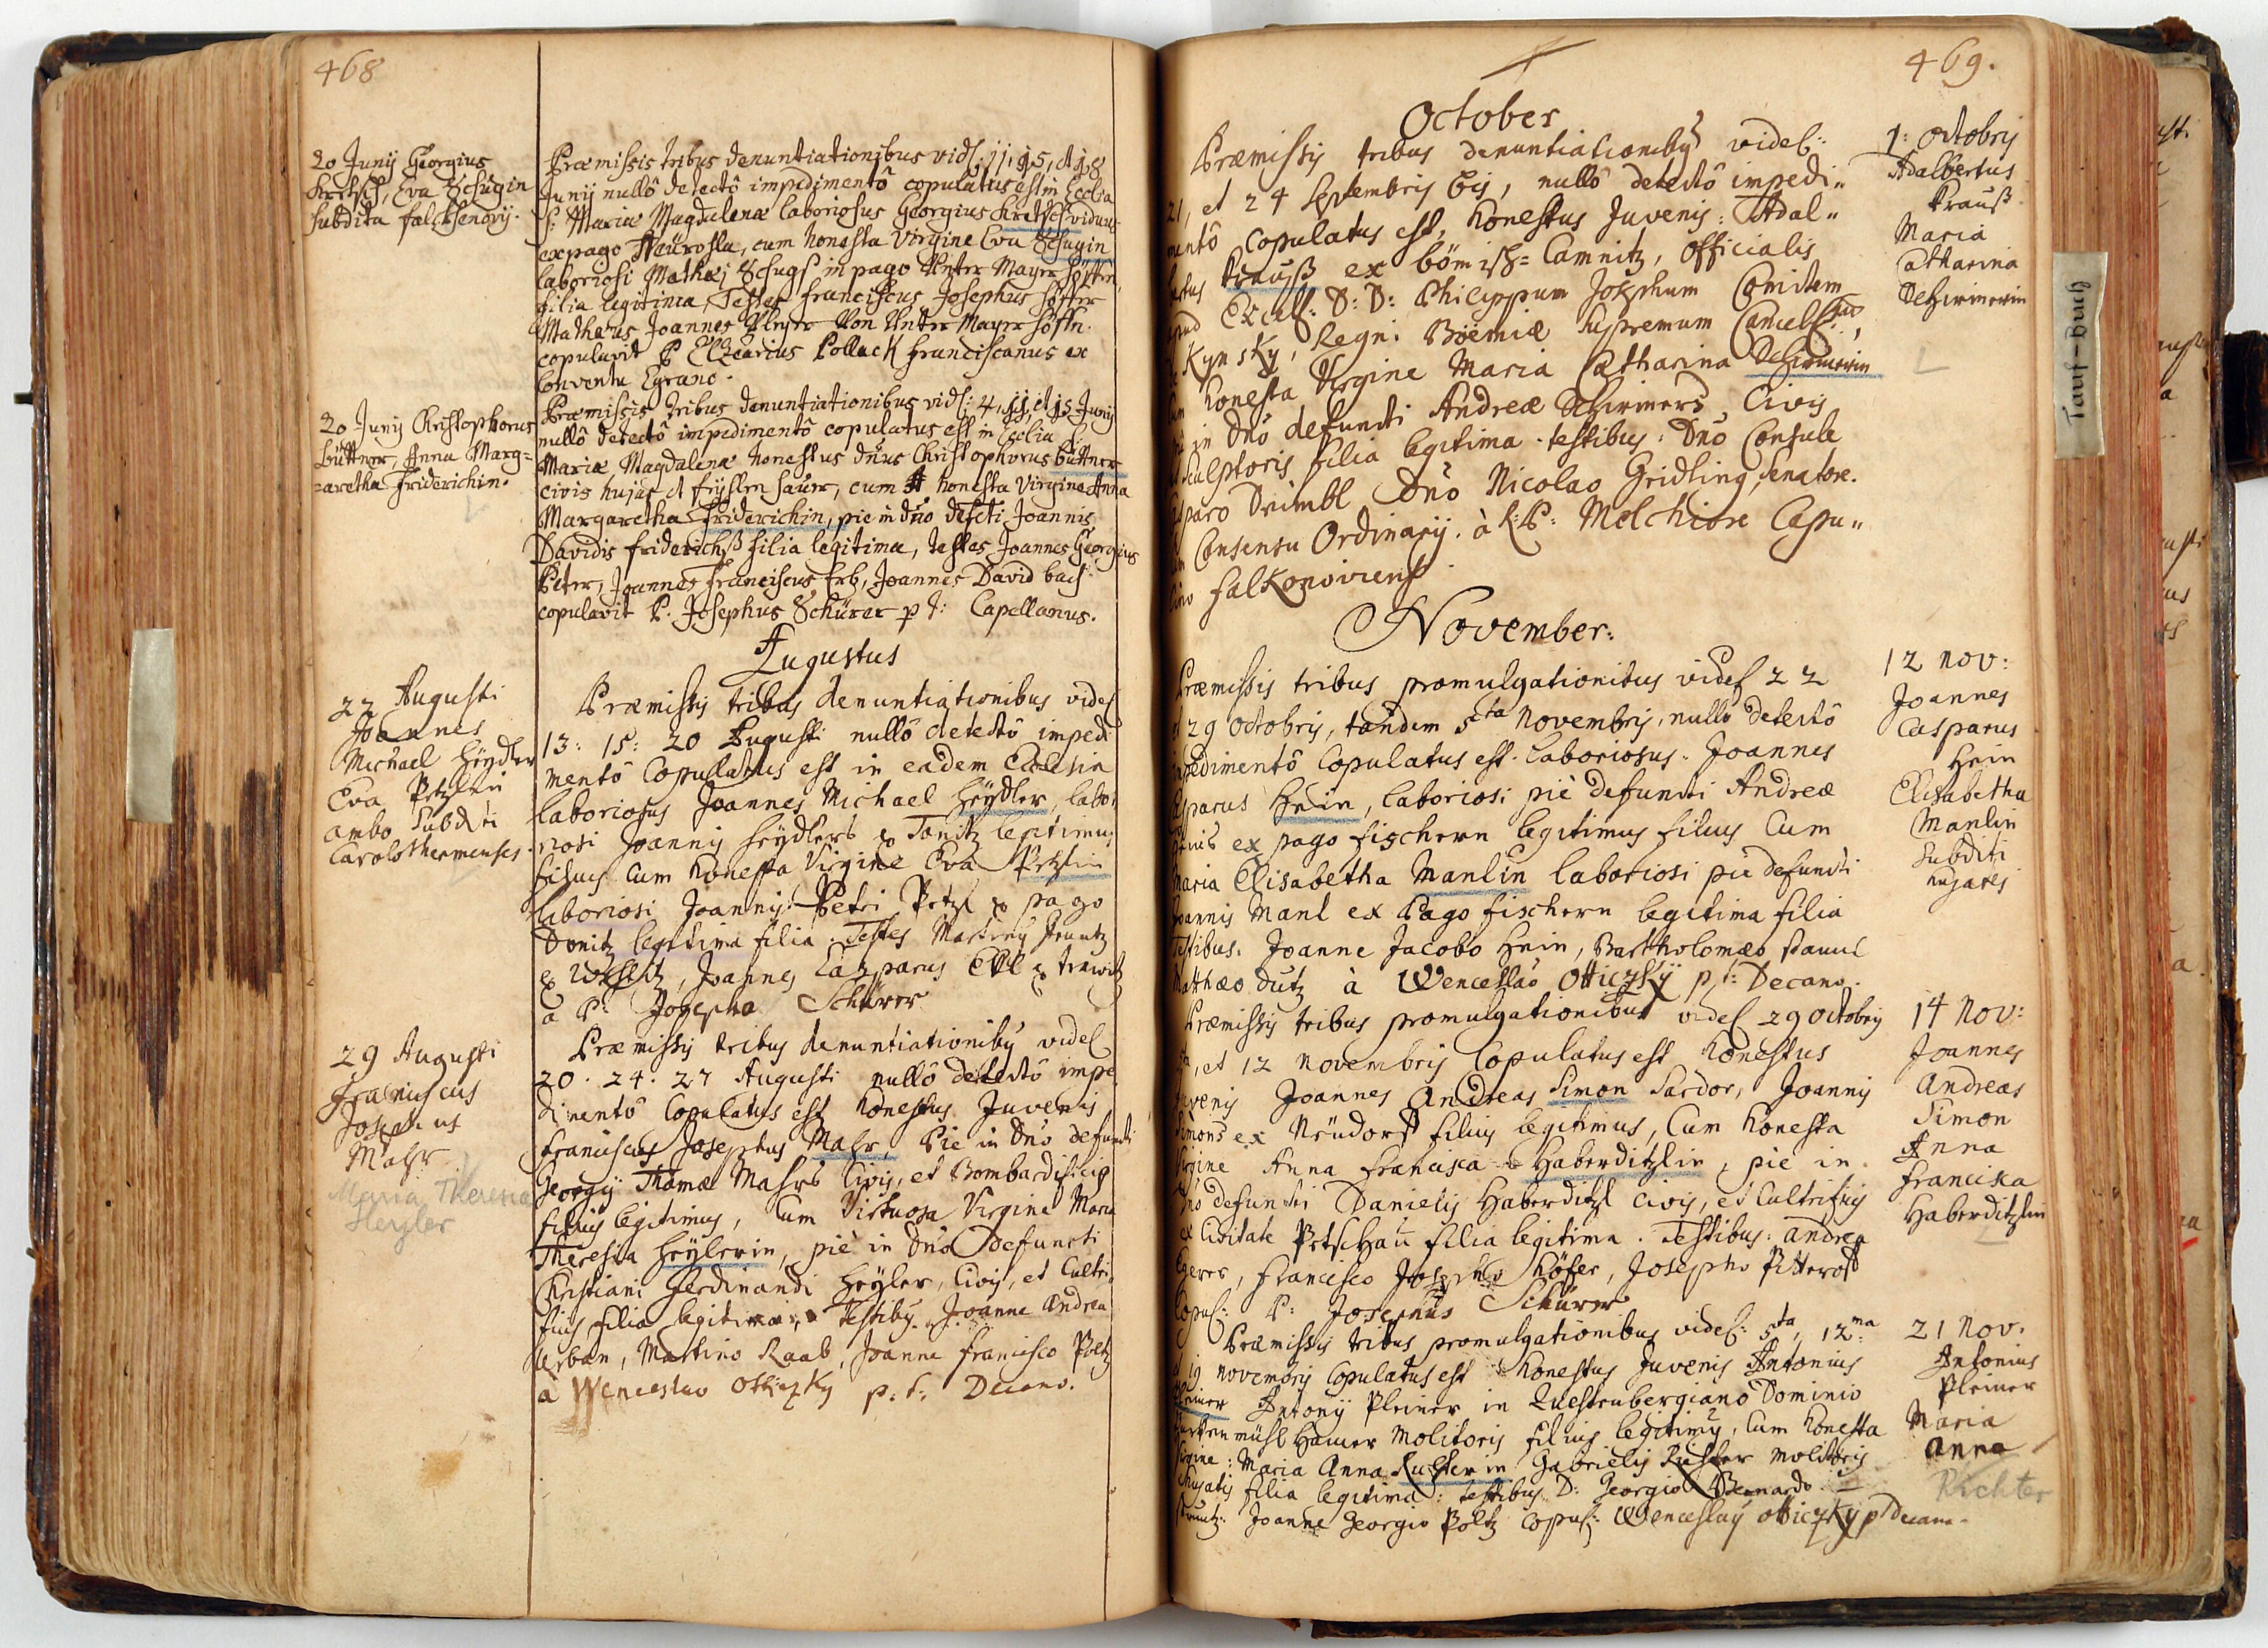 468
20 Junij Georgius
Kretsch, Eva Zchugin
subdita falckhenovij.
Præmissis tribus denuntiationibus vidl. 11, 15, et 18
Junij nullô detectô impedimentô copulatus est in Ecclia
S: Mariæ Magdalenæ laboriosus Georgius Kretsch viduus
ex pago cum honesta Virgine Eva Zchugin
laboriosi Mathæi Zchugs in pago Unter Mayerhöffen,
filia legitima, Testes franciscus Josephus Höffer
Mathæus Joannes Von Unter Mayer höffn.
copulavit P. Elzearius Pollack franciscanus ex
Conventu Egrano.
20 Junij Christophorus
Büttner, Anna Marg=
=aretha Friderichin.
Præmissis tribus denuntiationibus vidl: 4, 11, et 15 Junij
nullô detectô impedimentô copulatus est in Ecclia S:
Mariæ Magdalenæ honestus dnus Christophorus Büttner
civis hujas et cum honesta Virgine Anna
Margaretha Friderichin, pie in dno defcti Joannis
Davidis friderichß filia legitima, testes Joannes Georgius
Peter, Joannes franciscus Erb, Joannes David bach:
copulavit P. Josephus Zchürer p t: Capellanus.
Augustus
22 Augusti
Joannes
Michael Heÿdler
Eva Petzlin
ambo Subditi
Carolothermenses.
Præmissis tribus denuntiationibus videl
13: 15: 20 Augusti nullô detectô impedi
mentô Copulatus est in eadem Ecclesia
laboriosus Joannes Michael Heÿdler, labo:
riosi Joannis Heÿdlers ex Tonitz legitimus
filius cum honesta Virgine Eva Petzlin
laboriosi Joannis Petri Petzl ex pago
Donitz legitima filia. Testes Martinus
ex Joannes Casparus ex
a P: Josepho Schürer
29 Augusti
Franciscus
Josephus
Mahr
Maria Theresia
Heyler
Præmissis tribus denuntiationibus videl
20. 24. 27 Augusti nullô detectô impe
dimentô Copulatus est honestus Juvenis
Franciscus Josephus Mahr, Pie in Dno defuncti
Georgij Thomæ Mahrs Civis, et Bombardificis
filius legitimus, cum Virtuosa Virgine Maria
Theresia Heÿlerin, piè in Dno Defuncti
Christiani Ferdinandi Heÿler, Civis, et Cultri
ficis filia legitima, Testibus Joanne Andrea
Urban, Martino Raab, Joanne Francisco Poltz
à Wenceslao Otticzky p: t: Decano.
469.
October
Præmissis tribus denuntiationibus videl:
21, et 24 Septembris bis, nullô detectô impedi"
mentô Copulatus est, honestus Juvenis: Adal"
bertus Krauß ex bömisch= Camnitz, officialis
apud Excell: D: D: Philippum Josephum Comitem
Kynsky, Regni Boemiæ Supremum Cancell:
cum honesta Virgine Maria Catharina Schirmerin
in Dno defuncti Andreæ Schirmers, Civis
et Sculptoris filia legitima. testibus: Dno Consule
Casparo Drimbl Dno Nicolao Gridling, Senatore.
Consensu Ordinarij. à R: P: Melchiore Capu"
cino falkonoviensi.
1: octobris
Adalbertus
Krauß
Maria
Catharina
Schirmerin
November:
Præmissis tribus promulgationibus videl 22
29 octobris, tandem 5ta Novembris, nullô detectô
impedimentô Copulatus est. Laboriosus. Joannes
Casparus Hein, laboriosi piè defuncti Andreæ
Heinis ex pago fischern legitimus filius Cum
Maria Elisabetha Manlin laboriosi piè defuncti
Joannis Manl ex Pago fischern legitima filia
Testibus. Joanne Jacobo Hein, Bartholomæo
Matthæo Dutz à Wenceslao Otticzky p: t: Decano.
12 Nov:
Joannes
Casparus
Hein
Elisabetha
Manlin
Subditi
hujates
Præmissis tribus promulgationibus videl 29 octobris
5ta, et 12 novembris Copulatus est honestus
Juvenis Joannes Andreas Simon Sardor, Joannis
Simons ex Neudorf filius legitimus, Cum honesta
Virgine Anna Francisca Haberditzlin, pie in
Dno defuncti Danielis Haberditzl Civis, et Cultrificis
ex Civitate Petschau filia legitima. Testibus: Andrea
Egerer, Francisco Josepho Höfer, Josepho Pitterof
Copul: P: Josephus Schürer
14 Nov:
Joannes
Andreas
Simon
Anna
Francisca
Haberditzlin
Præmissis tribus promulgationibus videl: 5ta, 12ma
19 novembris Copulatus est honestus Juvenis Antonius
Pleiner Antonij Pleiner in Questenbergiano Dominio
mühl Hamer Molitoris filius legitimus, Cum honesta
Virgine: Maria Anna Richterin Gabrielis Richter Molitoris
hujatis filia legitima: testibus D: Georgio Bernardo
Joanne Georgio Poltz Copul: Wenceslaus Otticzky p t Decano.
21 Nov.
Antonius
Pleiner
Maria
Anna
Richter
Tauf-Buch